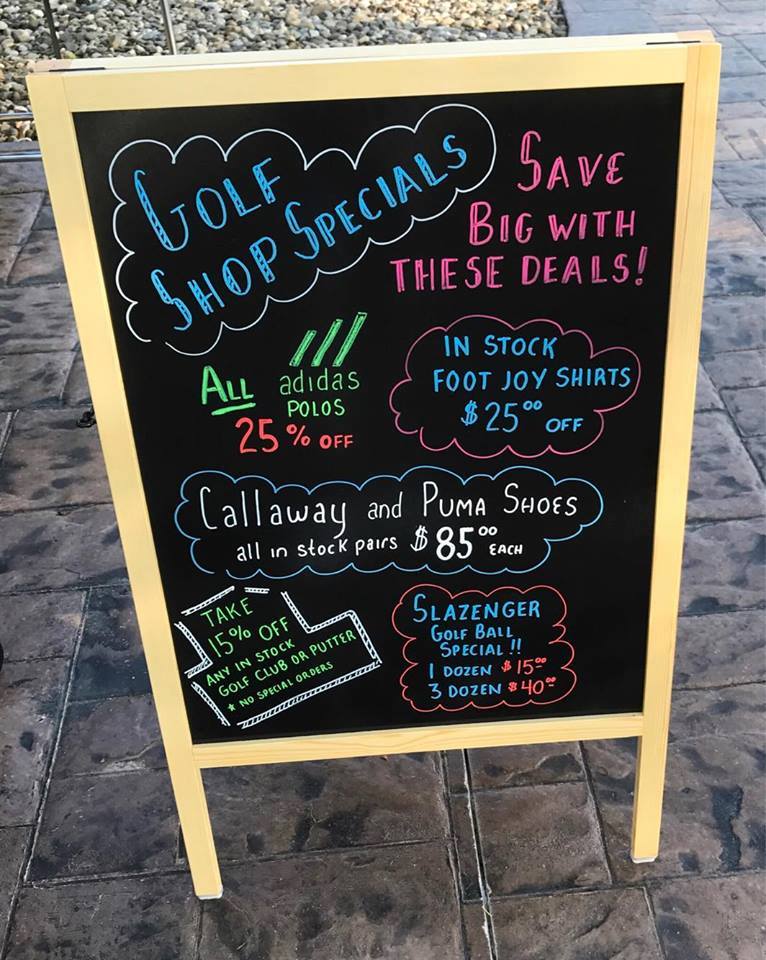 GOLF
SHOP SPECIALS
SAVE
BIG WITH
THESE DEALS!
ALL adidas
POLOS
25% OFF
IN STOCK
FOOT JOY SHIRTS
$25⁰⁰ OFF
Callaway and PUMA SHOES
all in stock pairs $85⁰⁰ EACH
TAKE
15% OFF
ANY IN STOCK
GOLF CLUB OR PUTTER
* NO SPECIAL ORDERS
SLAZENGER
GOLF BALL
SPECIAL!!
1 DOZEN $15⁰⁰
3 DOZEN $40⁰⁰